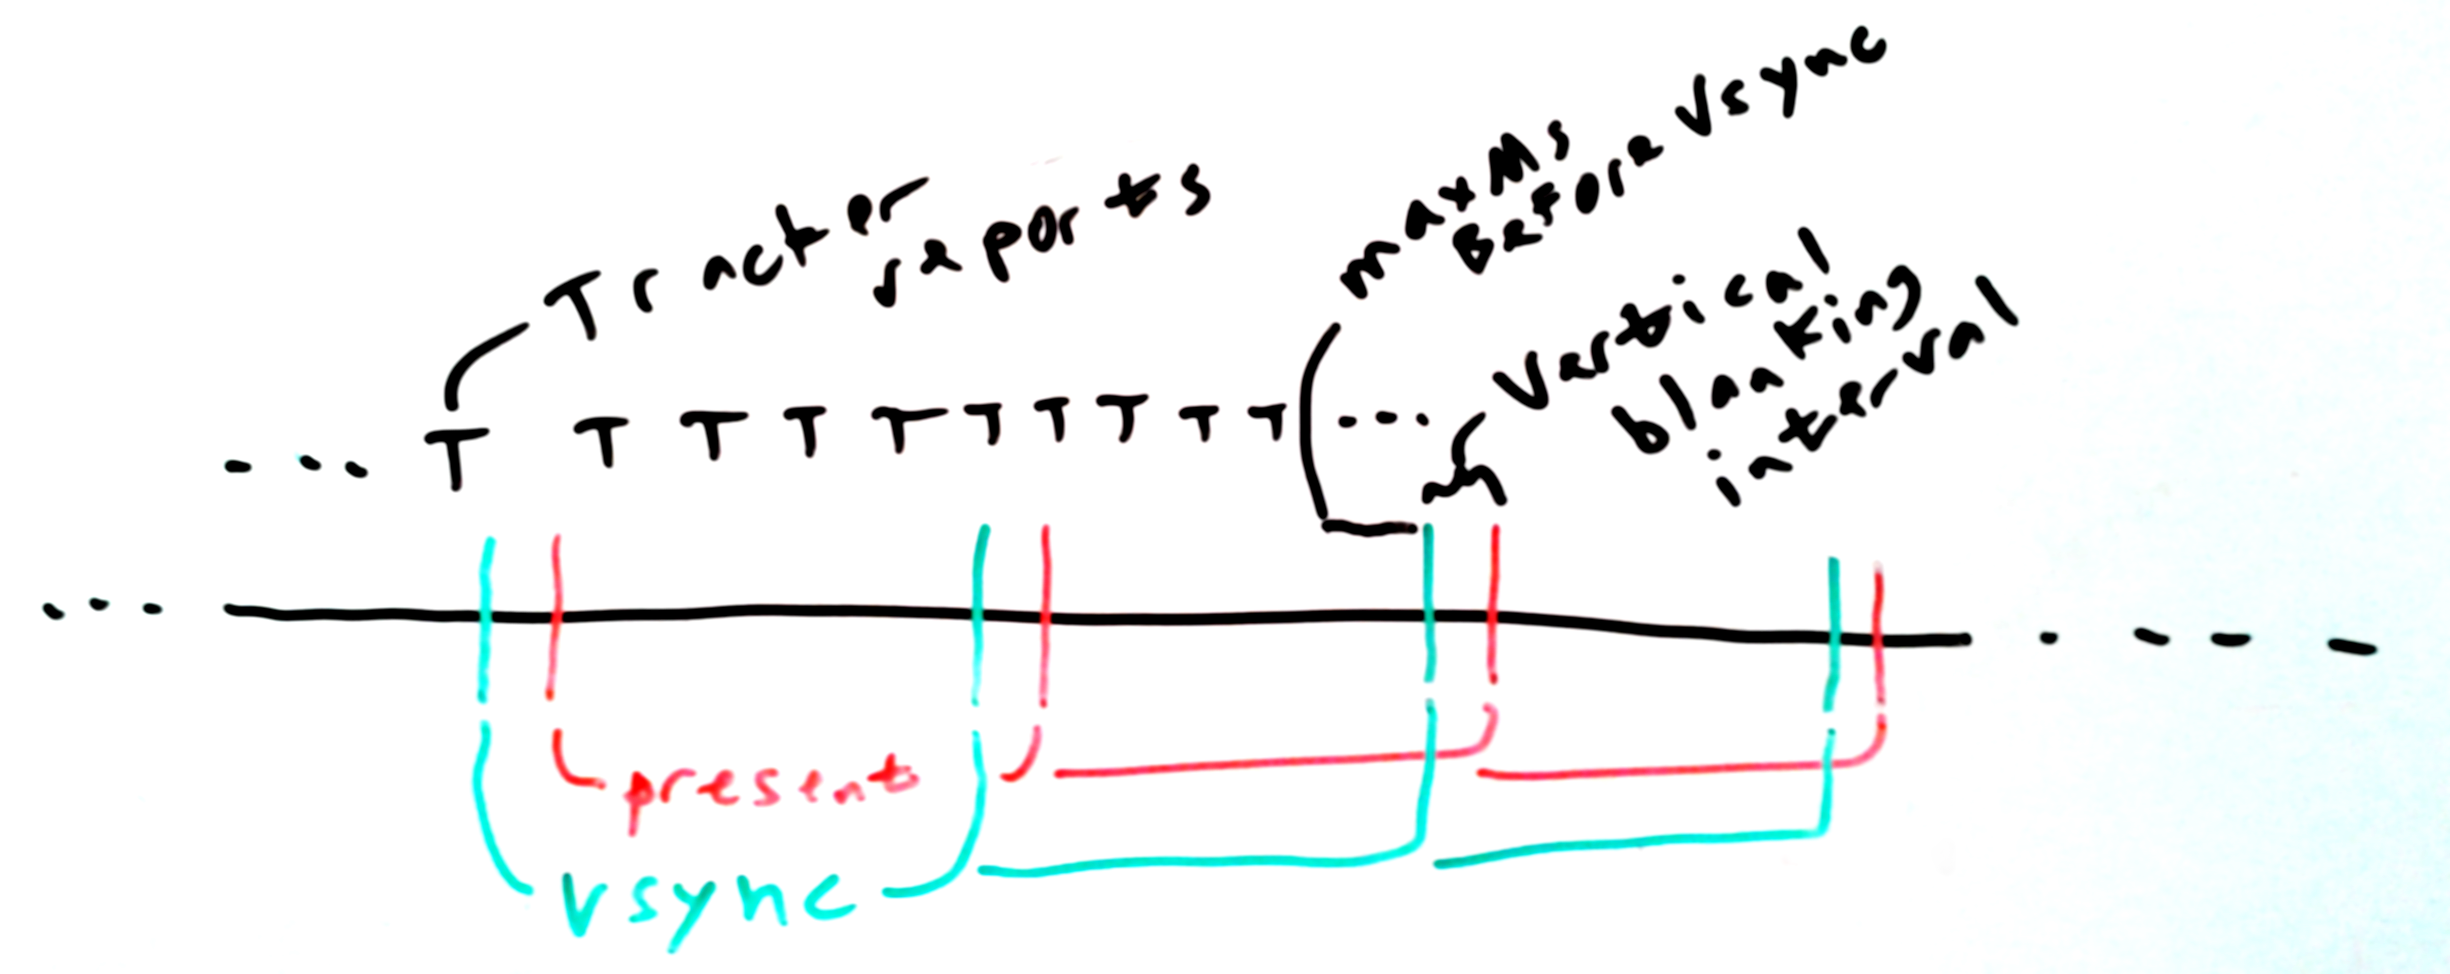 Tracker
reports
maxMs
Before Vsync
Vertical
blanking
interval
... T T T T T T T T T T ...
present
vsync